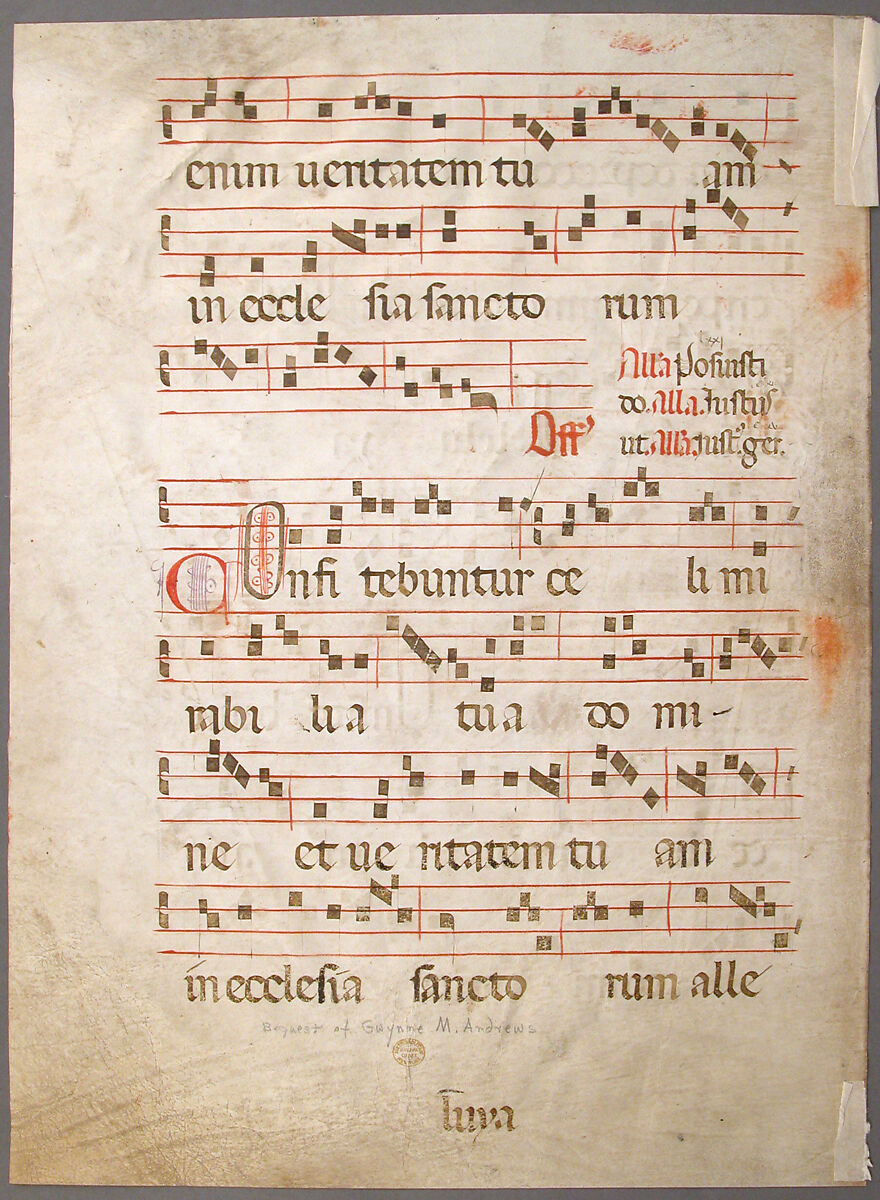 enim ueritatem tu am
in eccle sia sancto rum
Alla posuisti
do. Alla. Justus
ut. Alla. Just. ger.
Off
COnfi tebuntur ce li mi
rabi li a tu a do mi-
ne et ue ritatem tu am
in ecclesia sancto rum alle
Bequest of Gwynne M. Andrews
luya